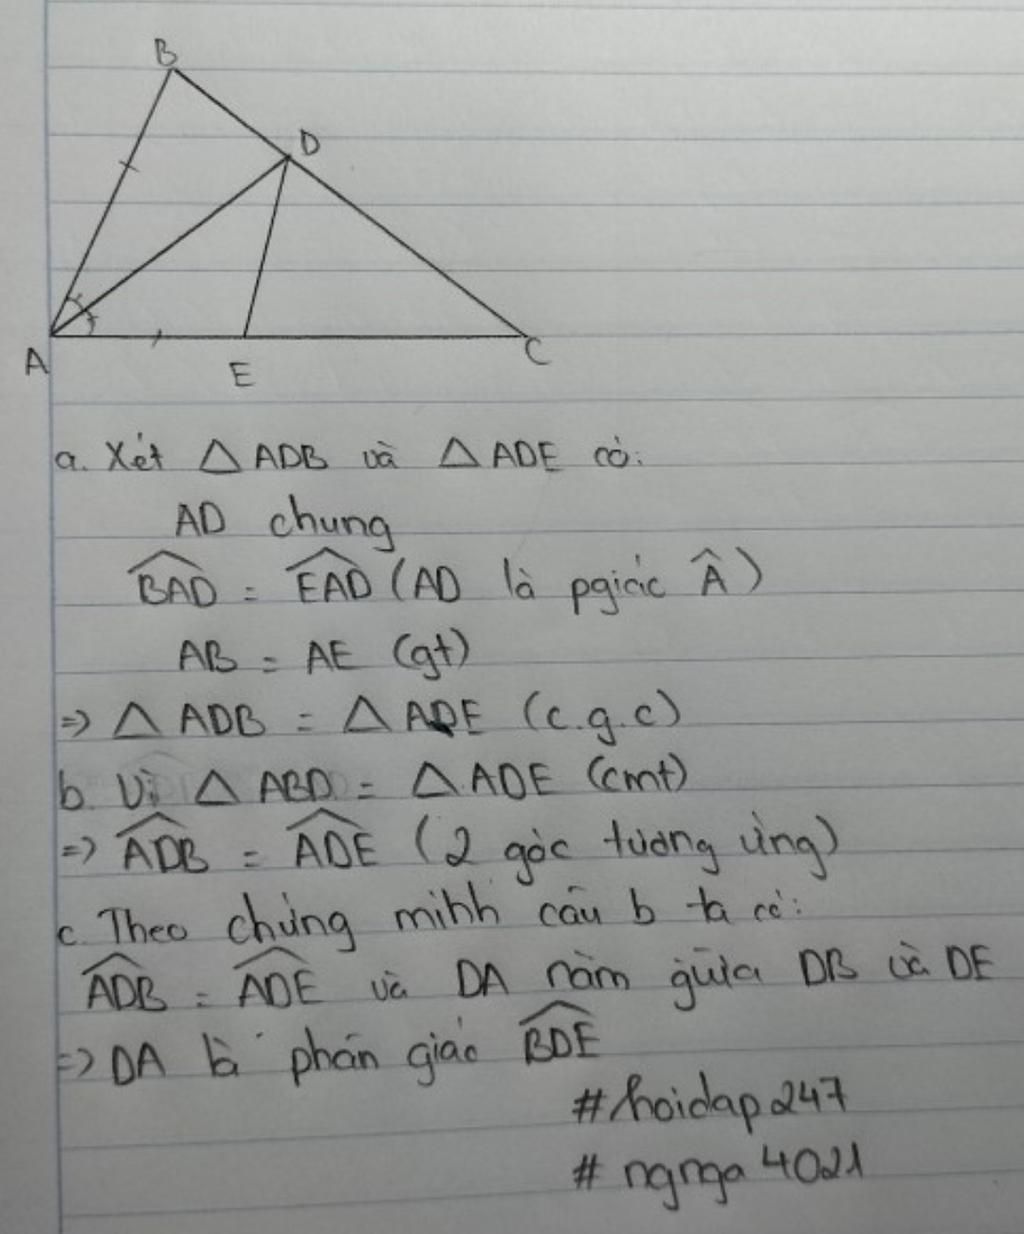 B
D
A
E
C
a. Xét △ ADB và △ ADE có:
AD chung
\widehat{BAD} = \widehat{EAD} (AD là pgiác Â)
AB = AE (gt)
=> △ ADB = △ ADE (c.g.c)
b. Vì △ ABD = △ ADE (cmt)
=> \widehat{ADB} = \widehat{ADE} (2 góc tương ứng)
c. Theo chứng minh câu b ta có:
\widehat{ADB} = \widehat{ADE} và DA nằm giữa DB và DE
=> DA là phân giác \widehat{BDE}
#hoidap247
# ngnga4021